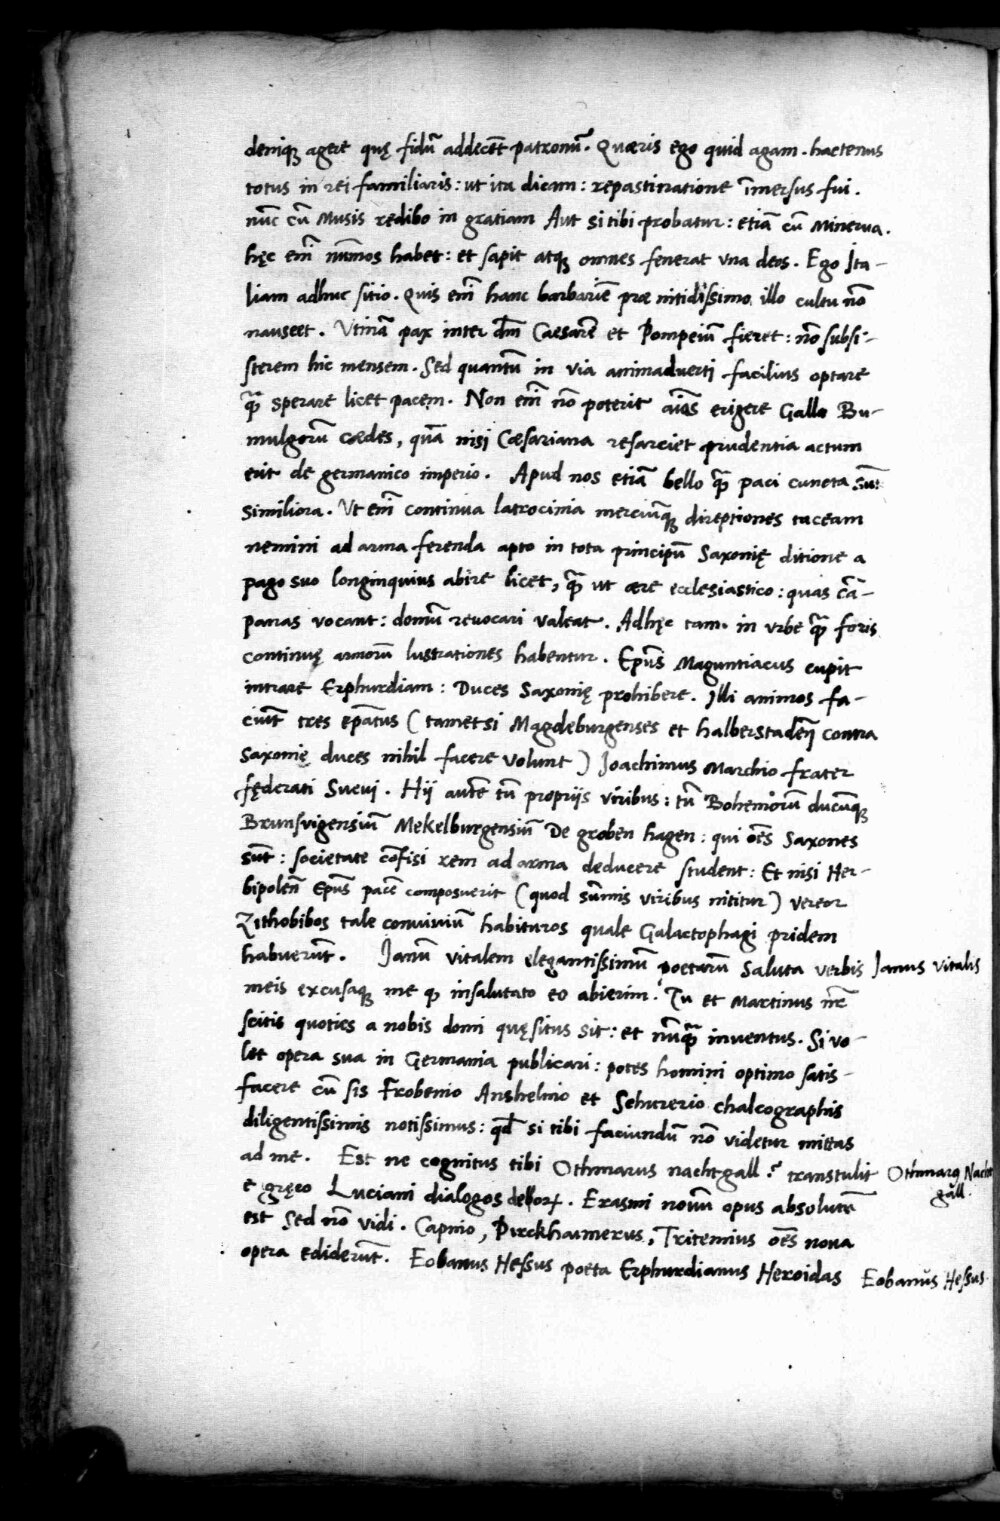 deniqꝫ agere quę fidũ addecẽt patronũ. Quæris ego quid agam. hactenus
totus in rei familiaris: ut ita dicam: repastinatione ĩmersus fui.
nũc cũ Musis redibo in gratiam Aut si tibi probatur: etiã cũ Minerua.
hęc em̃ nũmos habet: et sapit atqꝫ omnes fenerat vna deos. Ego Ita-
liam adhuc sitio. Quis em̃ hanc barbariẽ præ nitidissimo illo cultu nõ
nauseet. Vtinã pax inter dm̃ Caesarẽ et Pompeiũ fieret: nõ subsi-
sterem hic mensem. Sed quantũ in via animaduerti facilius optare
q̃ sperare licet pacem. Non em̃ nõ poterit aĩos erigere Gallo Bu-
mulgorũ cædes, quã nisi Cæsariana resarciet prudentia actum
erit de germanico imperio. Apud nos etiã bello q̃ paci cuncta sũt
similiora. Vt em̃ continua latrocinia merciũqꝫ direptiones taceam
nemini ad arma ferenda apto in tota principũ Saxonię ditione a
pago suo longinquius abire licet, q̃ ut ære ecclesiastico: quas cã-
panas vocant: domũ reuocari valeat. Adhęc tam in vrbe q̃ foris
continuę armorũ lustrationes habentur. Ep̃us Maguntiacus cupit
intrare Erphurdiam: Duces Saxonię prohibere. Illi animos fa-
ciũt tres ep̃atus (tametsi Magdeburgenses et halberstadeñ contra
Saxonię duces nihil facere volunt) Joachimus Marchio frater
fęderati Sueui. Hij autẽ tũ propriis viribus: tũ Bohemorũ ducũqꝫ
Brunsvigensiũ Mekelburgensiũ De groben hagen: qui oẽs Saxones
sũt: societate cõfisi rem ad arma deducere student: Et nisi Her-
bipoleñ Ep̃us pacẽ composuerit (quod sũmis viribus nititur) vereor
Zithobibos tale conuiuiũ habituros quale Galactophagi pridem
habuerũt. Janũ vitalem elegantissimũ poetarũ saluta verbis Janus vitalis
meis excusaqꝫ me ꝙ insalutato eo abierim. Tu et Martinus nr̃
scitis quoties a nobis domi quęsitus sit: et nũq̃ inuentus. Si vo-
let opera sua in Germania publicari: potes homini optimo satis-
facere cũ sis Frobenio Anshelmo et Schurerio chalcographis
diligentissimis notissimus: qd̃ si tibi faciundũ nõ videtur mittas
ad me. Est ne cognitus tibi Othmarus nachtgall? transtulit Othmarꝰ Nacht
e gręco Luciani dialogos deorꝝ. Erasmi nouũ opus absolutũ gall.
est Sed nõ vidi. Capnio, Pirckhaimerus, Tritemius oẽs noua
opera ediderũt. Eobanus Hessus poeta Erphurdianus Heroidas Eobanus Hessus.